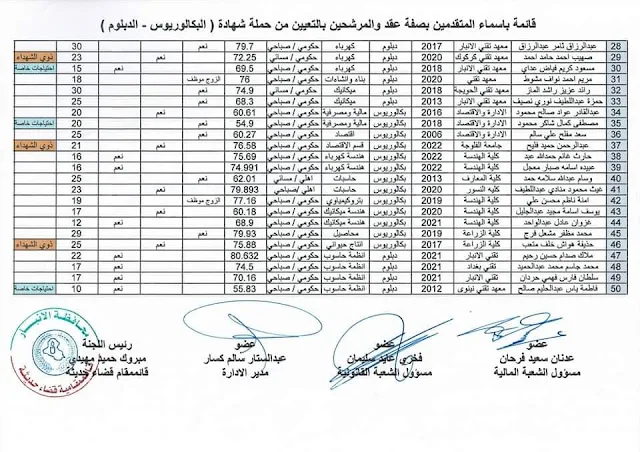 قائمة باسماء المتقدمين بصفة عقد والمرشحين بالتعيين من حملة شهادة ( البكالوريوس - الدبلوم )
28 عبدالرزاق ثامر عبدالرزاق معهد تقني الانبار 2017 دبلوم كهرباء حكومي / صباحي 79.7 نعم 30
29 صهيب احمد حامد احمد معهد تقني كركوك 2020 دبلوم كهرباء حكومي / مسائي 72.25 نعم 23 ذوي الشهداء
30 مسعود كريم فياض عداي معهد تقني الانبار 2018 دبلوم كهرباء حكومي / صباحي 69.5 نعم 15 احتياجات خاصة
31 مريم احمد نواف مشوط معهد تقني 2020 دبلوم بناء وانشاءات حكومي / صباحي 76 الزوج موظف 18
32 رائد عزيز راشد الماز معهد تقني الحويجة 2018 دبلوم ميكانيك حكومي / مسائي 74.9 نعم 30
33 حمزة عبداللطيف نوري نصيف معهد تقني الانبار 2013 دبلوم ميكانيك حكومي / صباحي 68.3 نعم 25
34 عبدالقادر عواد صالح محمود الادارة والاقتصاد 2016 بكالوريوس مالية ومصرفية حكومي / صباحي 60.61 نعم 20
35 مصطفى كمال شاكر محمود الادارة والاقتصاد 2018 بكالوريوس مالية ومصرفية حكومي / صباحي 54.9 نعم 20 احتياجات خاصة
36 سعد مفلح علي سالم الادارة والاقتصاد 2006 بكالوريوس اقتصاد حكومي / صباحي 60.27 نعم 25
37 عبدالرحمن حميد فليح جامعة الفلوجة 2022 بكالوريوس قسم الاقتصاد حكومي / صباحي 76.58 نعم 21 ذوي الشهداء
38 حارث غانم حمدالله عبد كلية الهندسة 2022 بكالوريوس هندسة كهرباء حكومي / صباحي 75.69 نعم 16
39 عبيده اسامه صبار معجل كلية الهندسة 2022 بكالوريوس هندسة كهرباء حكومي / صباحي 74.991 نعم 16
40 وسام عبدالله سلامه حمد كلية المعارف 2013 بكالوريوس حاسبات اهلي / مسائي 62.01 نعم 25
41 غيث محمود منادي عبداللطيف كلية النسور 2020 بكالوريوس حاسبات اهلي /صباحي 79.893 نعم 21
42 امنة ناظم سحن علي كلية الهندسة 2019 بكالوريوس بتروكيمياوي حكومي / صباحي 77.16 الزوج موظف 19
43 يوسف اسامة مجيد عبدالجليل كلية الهندسة 2020 بكالوريوس هندسة ميكانيك حكومي / صباحي 60.18 نعم 17
44 غزوان عادل عبدالواحد كلية الهندسة 2021 بكالوريوس هندسة ميكانيك حكومي / صباحي 68.9 نعم 12
45 محمد مظفر مشعل فرج كلية الزراعة 2019 بكالوريوس محاصيل حكومي / صباحي 79.93 نعم 29
46 حذيفة هواش خلف متعب كلية الزراعة 2017 بكالوريوس انتاج حيواني حكومي / صباحي 75.88 نعم 25 ذوي الشهداء
47 ملاك صدام حسين رحيم تقني الانبار 2021 دبلوم انظمة حاسوب حكومي / صباحي 80.632 نعم 22
48 محمد جاسم محمد عبدالحميد تقني بغداد 2021 دبلوم انظمة حاسوب حكومي / صباحي 74.5 نعم 17
49 سلطان فارس فهمي جردان تقني الانبار 2021 دبلوم انظمة حاسوب حكومي / صباحي 70.16 نعم 17
50 فاطمة ياس عبدالحليم صالح معهد تقني نينوى 2012 دبلوم انظمة حاسوب حكومي / صباحي 55.83 نعم 10 احتياجات خاصة
عضو عضو عضو رئيس اللجنة
عدنان سعيد فرحان فخري عايد سليمان عبدالستار سالم كسار مبروك حميد مهيدي
مسؤول الشعبة المالية مسؤول الشعبة القانونية مدير الادارة قائممقام قضاء حديثة
محافظة الانبار
قائممقامية قضاء حديثة